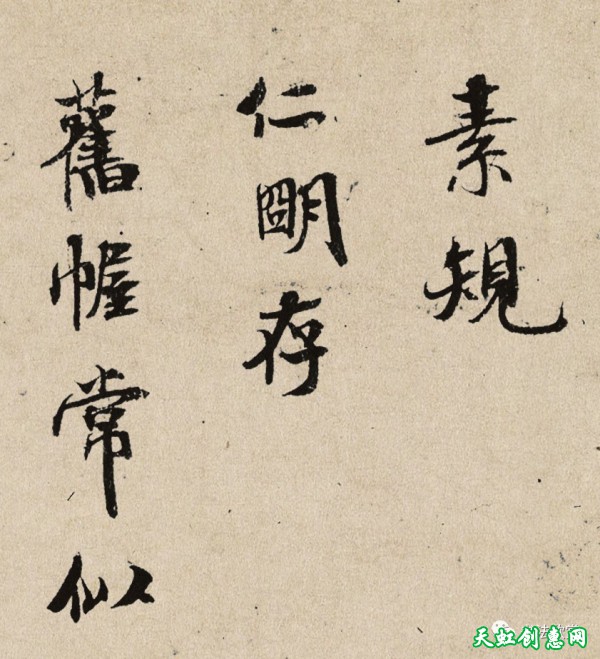 素規
仁明存
舊幄常似
天虹创惠网